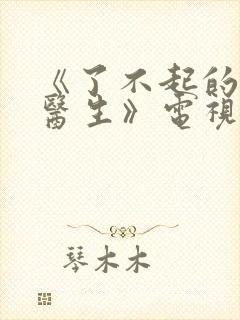 《了不起的
醫生》電視
琴木木